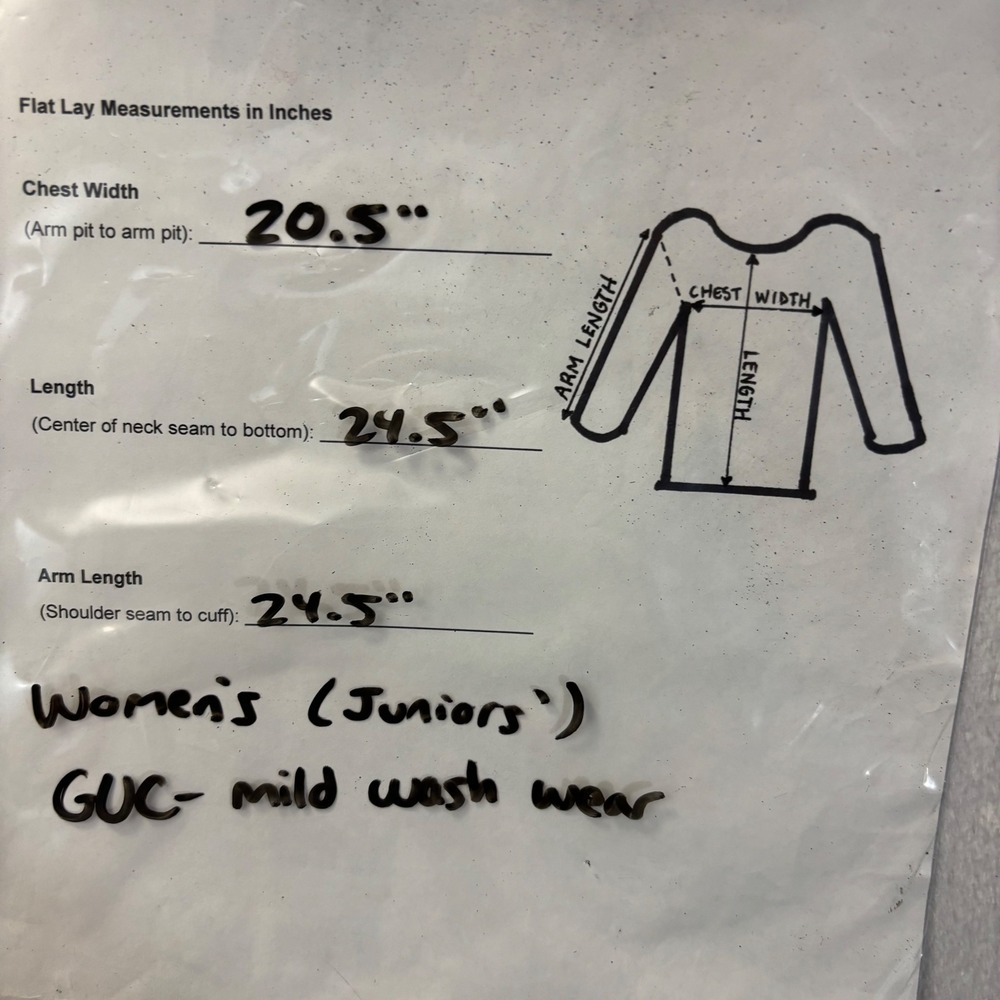 Flat Lay Measurements in Inches
Chest Width
(Arm pit to arm pit): 20.5"
Length
(Center of neck seam to bottom): 24.5"
Arm Length
(Shoulder seam to cuff): 24.5"
Women's (Juniors')
GUC- mild wash wear
ARM LENGTH
CHEST WIDTH
LENGTH